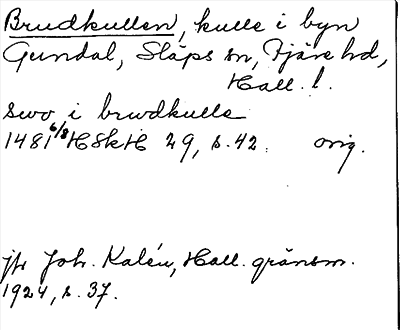 Brudkullen, kulle i byn
Gundal, Släps sn, Fjäre hd,
Hall. l.
swo i brwdkulla
1481 6/8 HSkH 29, s. 42. orig.
jfr Joh. Kalén, Hall. gränsm.
1924, s. 37.